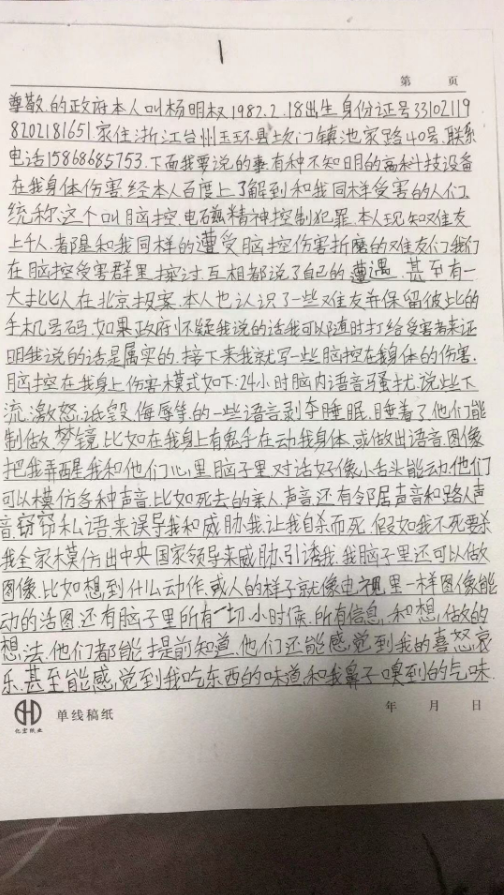 1
第 页
尊敬的政府本人叫杨明权1982.2.18出生身份证号33102119
8202181651家住浙江台州玉环县坎门镇池家路40号.联系
电话15868685753.下面我要说的事有种不知明的高科技设备
在我身体伤害.经本人百度上了解到和我同样受害的人们.
统称这个叫脑控.电磁精神控制犯罪.本人现知难友
上千人.都是和我同样的遭受脑控伤害折磨的难友们我们
在脑控受害群里探讨互相都说了自己的遭遇.甚至有一
大批人在北京报案.本人也认识了一些难友并保留彼此的
手机号码.如果政府怀疑我说的话我可以随时打给受害者来证
明我说的话是属实的.接下来我就写一些脑控在我身体的伤害.
脑控在我身上伤害模式如下:24小时脑内语音骚扰.说些下
流.激怒.诋毁.侮辱.等的一些语言.剥夺睡眠.睡着了他们能
制做.梦镜.比如在我身上有鬼手在动我身体.或做出语音.图像
把我弄醒.我和他们心里脑子里对话好像小舌头能动.他们
可以模仿多种声音.比如死去的亲人.声音.还有邻居声音和路人声
音.窃窃私语.来误导我和威胁我.让我自杀而死.假如我不死要杀
我全家.模仿出中央.国家领导来威胁.引诱我.我脑子里还可以做
图像.比如想到什么动作.或人的样子就像电视里一样图像能
动的活图.还有脑子里所有一切.小时候.所有信息.和想.做的
想.法.他们都能提前知道.他们还能感.觉到我的喜怒哀
乐.甚至能感.觉到我吃东西的味道.和我鼻子嗅到的气味.
单线稿纸 年 月 日